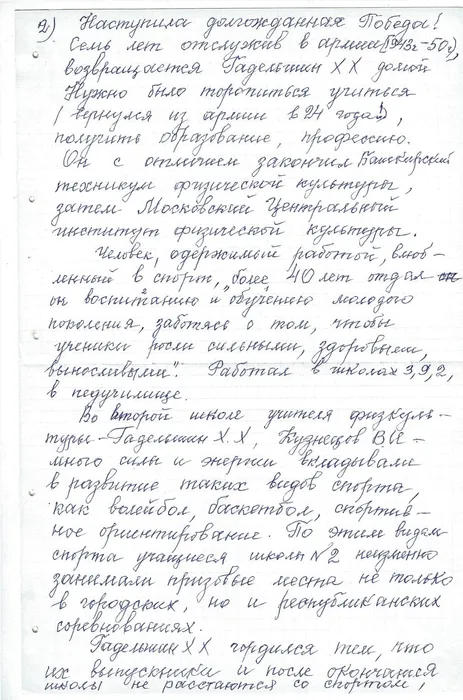 2.) Наступила долгожданная Победа!
Семь лет отслужив в армии (1943г-50г),
возвращается Гадельшин Х Х домой
Нужно было торопиться учиться
(вернулся из армии в 24 года!),
получить образование, профессию.
Он с отличием закончил Башкирский
техникум физической культуры,
затем Московский Центральный
институт физической культуры.
Человек, одержимый работой, влюб-
ленный в спорт, "более 40 лет отдал
он воспитанию и обучению молодого
поколения, заботясь о том, чтобы
ученики росли сильными, здоровыми,
выносливыми". Работал в школах 3,9,2,
в педучилище.
Во второй школе учителя физкуль-
туры - Гадельшин Х.Х, Кузнецов В.С -
много силы и энергии вкладывали
в развитие таких видов спорта,
как волейбол, баскетбол, спортив-
ное ориентирование. По этим видам
спорта учащиеся школы №2 неизменно
занимали призовые места не только
в городских, но и республиканских
соревнованиях.
Гадельшин Х Х гордился тем, что
их выпускники и после окончания
школы не расстаются со спортом,